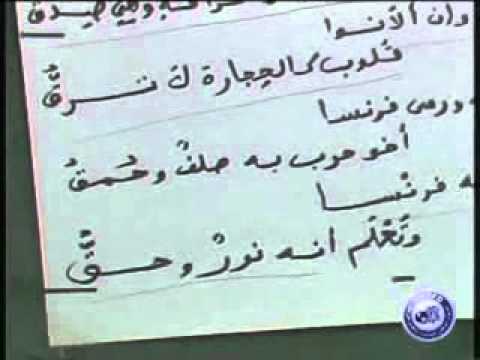 وهي صدق
وان ألانوا
قلوب كالحجارة لا ترقُّ
ورمى فرنسا
أخو حرب به صلفٌ وحُمقُ
ه فرنسا
وتَعْلَم أنه نورٌ وحقُّ